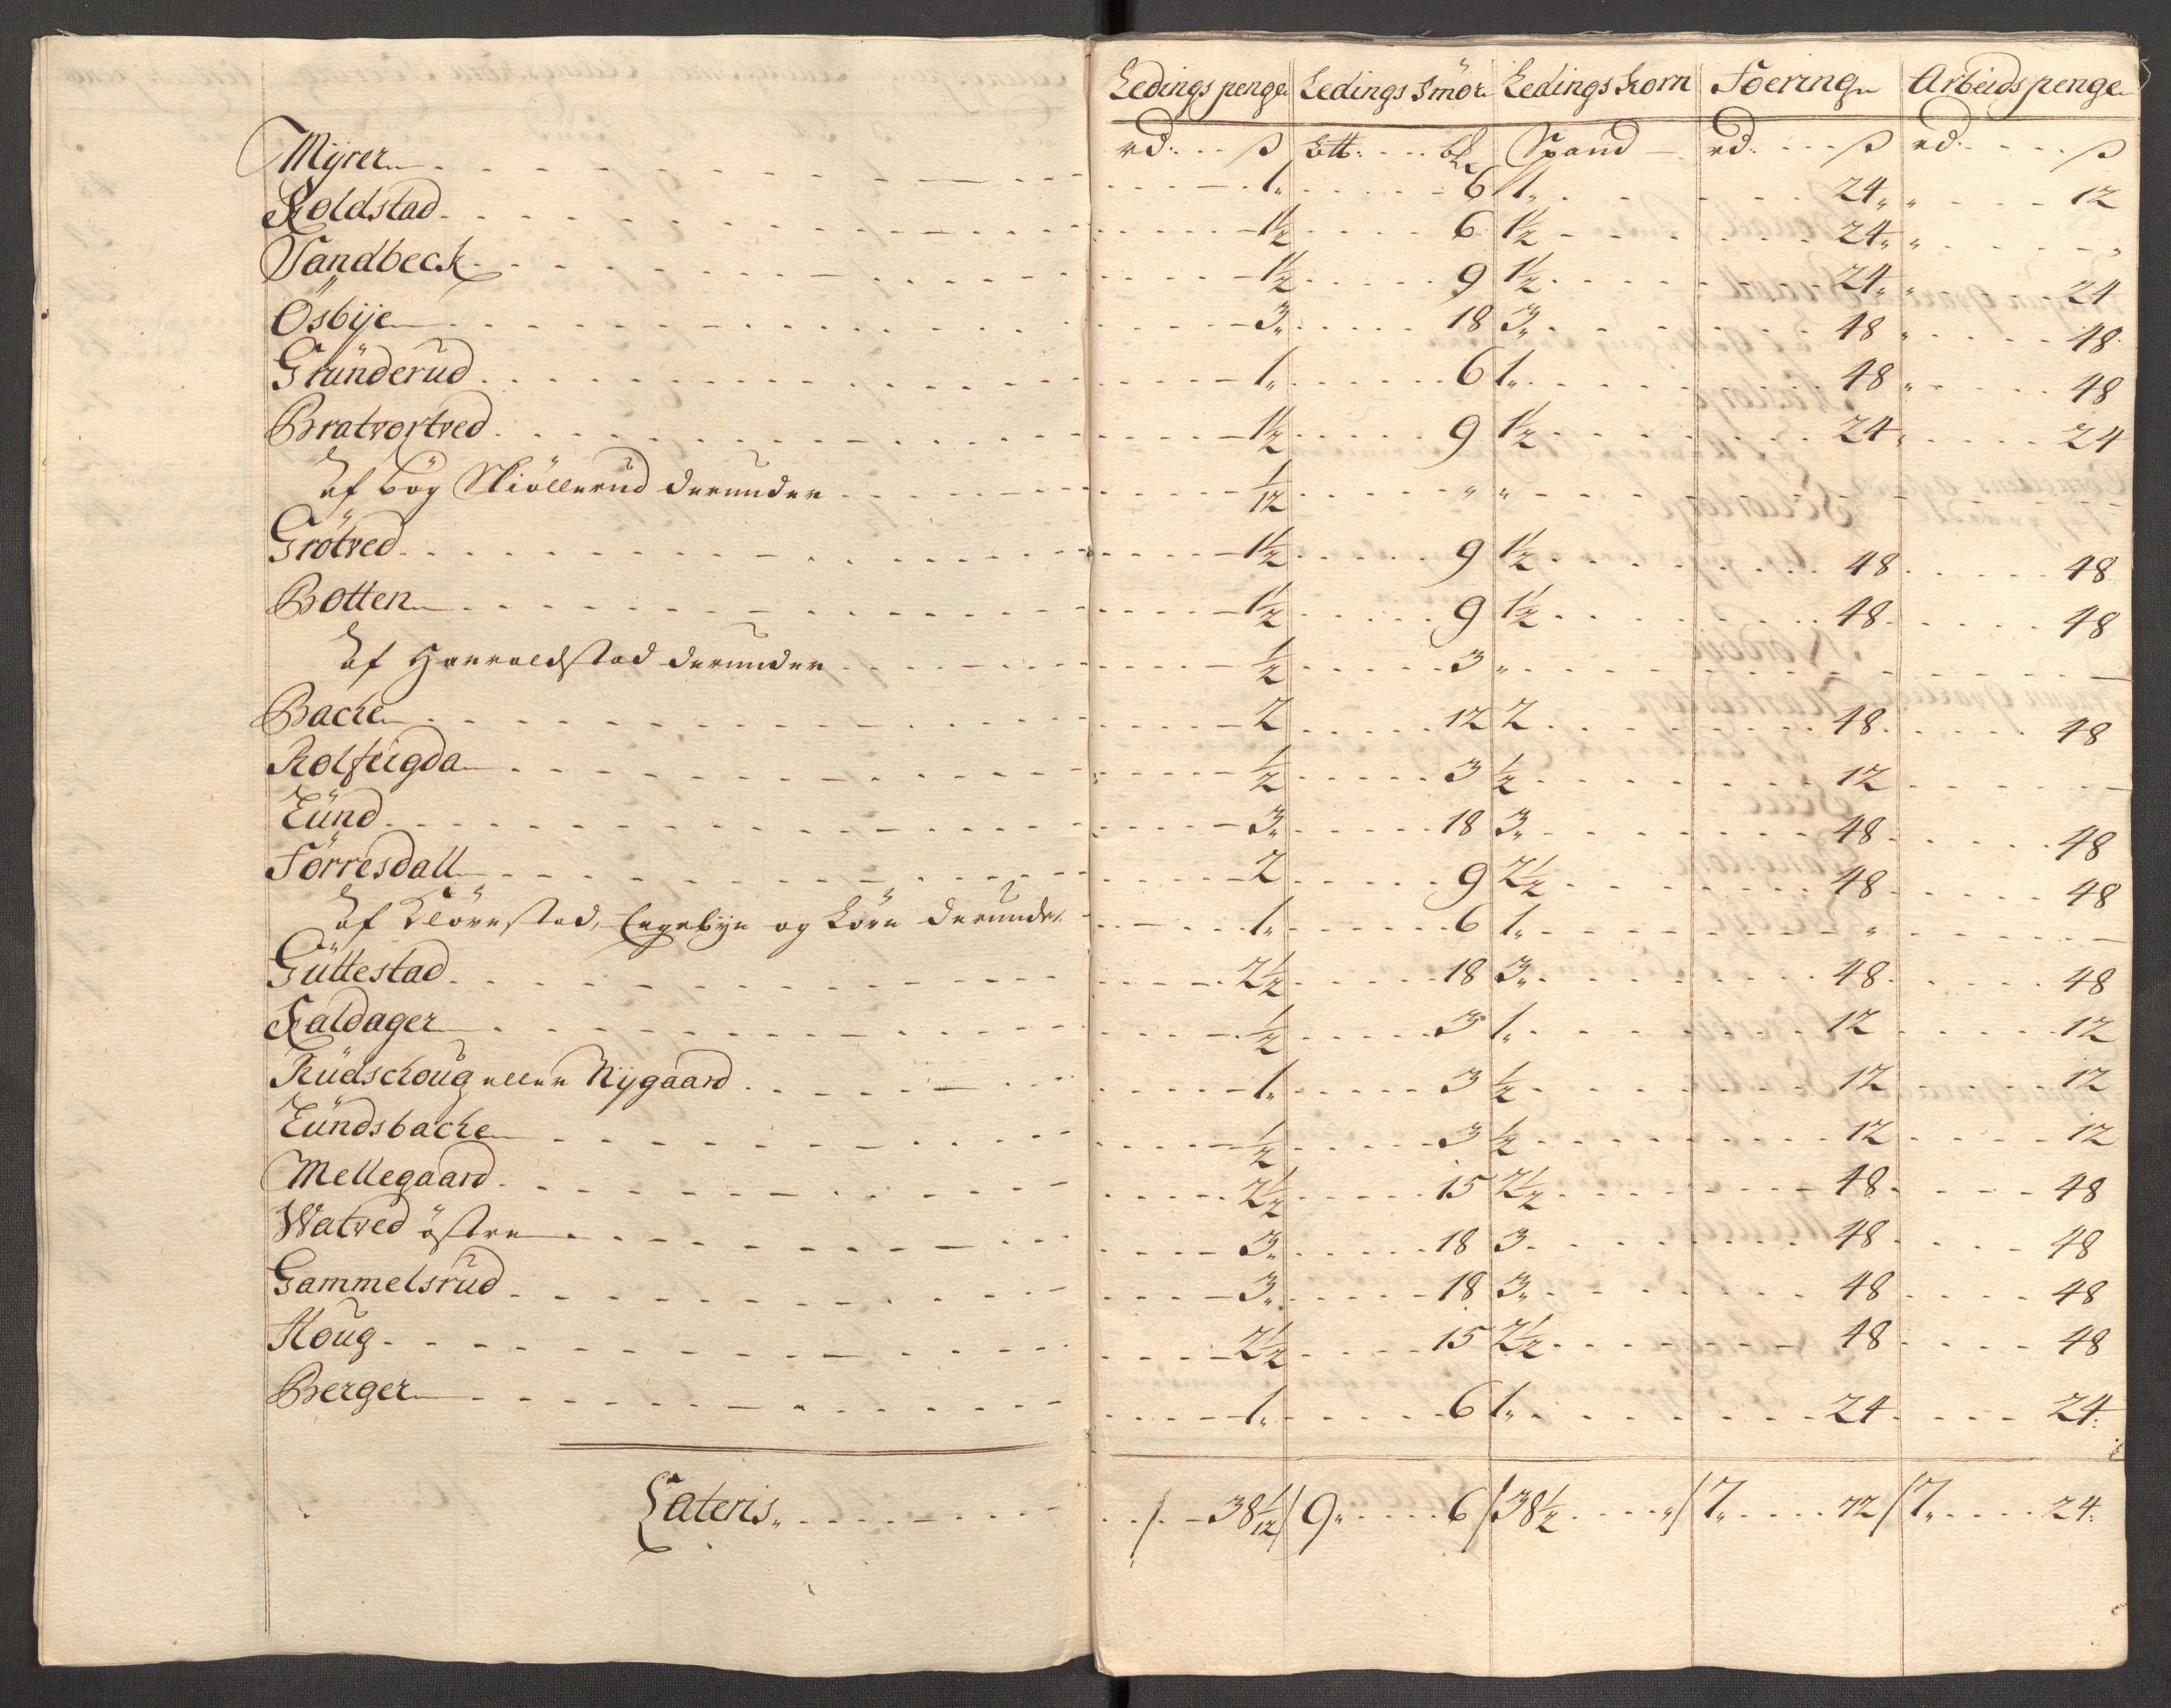 Ledings penge Ledings Smör Ledings Korn Foering Arbeids penge
rd: ß Ltt: bl Spand rd: ß rd: ß
Mÿrer 1„ 6 1„ 24„ „ 12
Koldstad 1½ 6 1½ 24„ „ „
Sandbeck 1½ 9 1½ 24„ „ 24
Ösbÿe 3„ 18 3„ 48 „ 48
Gründerud 1„ 6 1„ 48 „ 48
Bratvortved 1½ 9 1½ 24„ 24
Af bög Skiöllerud derunder 1/12 „ „
Grötved 1½ 9 1½ 48 48
Botten 1½ 9 1½ 48 48
Af Harraldstad derunder ½ 3 „
Bache 2 12 2 48 48
Rolfrigda ½ 3 ½ 12
Lünd 3„ 18 3„ 48 48
Törresdall 2 9 2½ 48 48
Af Klörestad, Engebÿe og Lörn derunder 1„ 6 1„ „
Güttestad 2½ 18 3„ 48 48
Kaldager ½ 3 1„ 12 12
Rüdschoug eller Nÿgaard 1„ 3 ½ 12 12
Lündsbache ½ 3 ½ 12 12
Mellegaard 2½ 15 2½ 48 48
Watved östre 3„ 18 3 48 48
Gammelsrud 3„ 18 3„ 48 48
Houg 2½ 15 2½ 48 48
Berger 1„ 6 1„ 24 24
Lateris„ / 38 1/12 / 9„ 6 / 38½ „ / 7„ 72 / 7„ 24